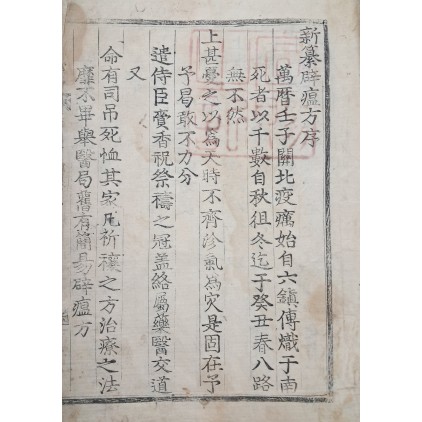 新纂辟瘟方序
萬曆壬子關北疫癘始自六鎭傳熾于南
死者以千數自秋徂冬迄于癸丑春八路
無不然
上甚憂之以爲天時不齊沴氣爲灾是固在予
予曷敢不力分
遣侍臣賫香祝祭禱之冠盖絡屬藥醫交道
又
命有司吊死恤其家凡祈禳之方治療之法
靡不畢擧醫局舊有簡易辟瘟方